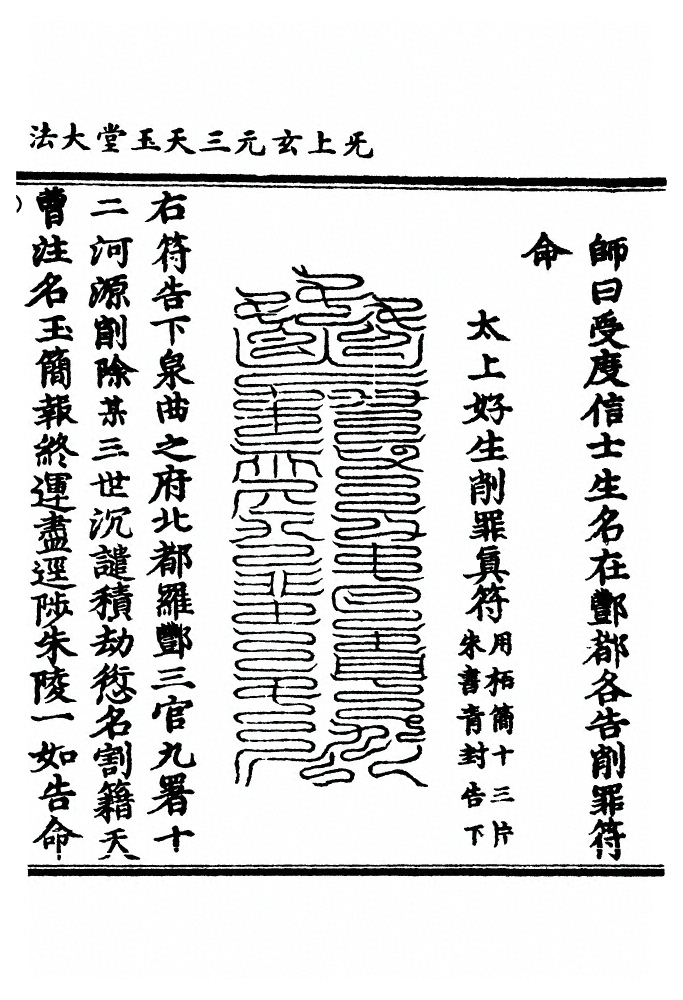 无上玄元三天玉堂大法
師曰受度信士生名在酆都各告削罪符
命
太上好生削罪真符
用柏簡十三片
朱書青封告下
右符告下泉曲之府北都羅酆三官九署十
二河源削除某三世沉譴積劫愆名割籍天
曹注名玉簡報終運盡逕陟朱陵一如告命